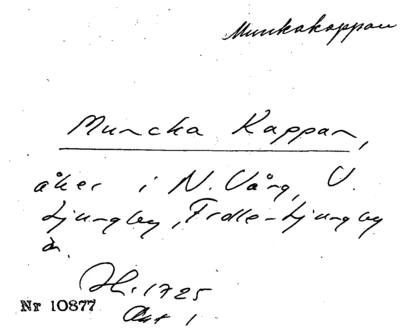 Munkakappan
Muncka Kappan,
åker i N. Vång, V.
Ljungby, Trolle-Ljungby
Nr 10877
1725
Akt 1